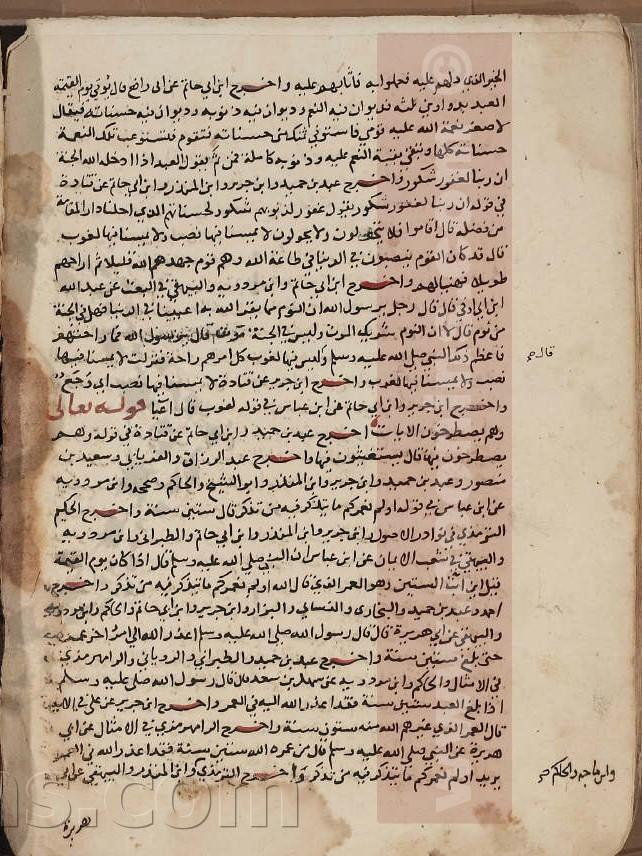 الخبز الذي دلهم عليه فحملوا به فاثابهم عليه واخرج ابن ابي حاتم عن ابي رافع قال يؤتى يوم القيمة
العبد بدواوين ثلثة فديوان فيه النعم وديوان فيه ذنوبه وديوان فيه حسناته فيقال
لاصغر نعمة الله عليه قومي فاستوفي ثمنك من حسناته فتقوم فتستوعب تلك النعمة
حسناته كلها وتبقى بقية النعم عليه وذنوبه كاملة فمن ثم يقول العبد اذا ادخله الله الجنة
ان ربنا لغفور شكور واخرج عبد بن حميد وابن جرير وابن المنذر وابن ابي حاتم عن قتادة
في قوله ان ربنا لغفور شكور يقول غفور لذنوبهم شكور لحسناتهم الذي احلنا دار المقامة
من فضله قال اقاموا فلا يتحولون ولا يحولون لا يمسنا فيها نصب ولا يمسنا فيها لغوب
قال قد كان القوم ينصبون في الدنيا في طاعة الله وهم قوم جهدهم الله قليلا ثم اراحهم
طويلا فهنيئا لهم واخرج ابن ابي حاتم وابن مردويه والبيهقي في البعث عن عبد الله
ابن ابي اوفى قال قال رجل يرسول الله ان النوم مما يقر الله به اعيننا في الدنيا فهل في الجنة
من نوم قال لا ان النوم شريك الموت وليس في الجنة موت قال يرسول الله فما راحتهم
فاعظم ذلك النبي صلى الله عليه وسلم وليس فيها لغوب كل امرهم راحة فنزلت لا يمسنا فيها
قال صح
نصب ولا يمسنا فيها لغوب واخرج ابن جرير عن قتادة لا يمسنا فيها نصب اي وجع
واخرج ابن جرير وابن ابي حاتم عن ابن عباس في قوله لغوب قال اعيا قوله تعالى
وهم يصطرخون الايات اخرج عبد بن حميد وابن ابي حاتم عن قتادة في قوله وهم
يصطرخون فيها قال يستغيثون فيها واخرج عبد الرزاق والفريابي وسعيد بن
منصور وعبد بن حميد وابن جرير وابن المنذر وابو الشيخ والحاكم وصححه وابن مردويه
عن ابن عباس في قوله اولم نعمركم ما يتذكر فيه من تذكر قال ستين سنة واخرج الحكيم
الترمذي في نوادر الاصول وابن جرير وابن المنذر وابن ابي حاتم والطبراني وابن مردويه
والبيهقي في شعب الايمان عن ابن عباس ان النبي صلى الله عليه وسلم قال اذا كان يوم القيمة
قيل اين ابنا الستين وهو العمر الذي قال الله اولم نعمركم ما يتذكر فيه من تذكر واخرج
احمد وعبد بن حميد والبخاري والنسائي والبزار وابن جرير وابن ابي حاتم والحاكم وابن مردويه
والبيهقي عن ابي هريرة قال قال رسول الله صلى الله عليه وسلم اعذر الله الى امرئ اخر عمره
حتى بلغ ستين سنة واخرج عبد بن حميد والطبراني والروياني والرامهرمزي
في الامثال والحاكم وابن مردويه عن سهل بن سعد قال قال رسول الله صلى الله عليه وسلم
اذا بلغ العبد ستين سنة فقد اعذر الله اليه في العمر واخرج ابن جرير عن علي في الاية
قال العمر الذي عمرهم الله منه ستون سنة واخرج الرامهرمزي في الامثال عن ابي
هريرة عن النبي صلى الله عليه وسلم قال من عمره الله ستين سنة فقد اعذر الله في العمر
يريد اولم نعمركم ما يتذكر فيه من تذكر واخرج الترمذي وابن المنذر والبيهقي عن ابي
وابن ماجه والحاكم صح
هريرة